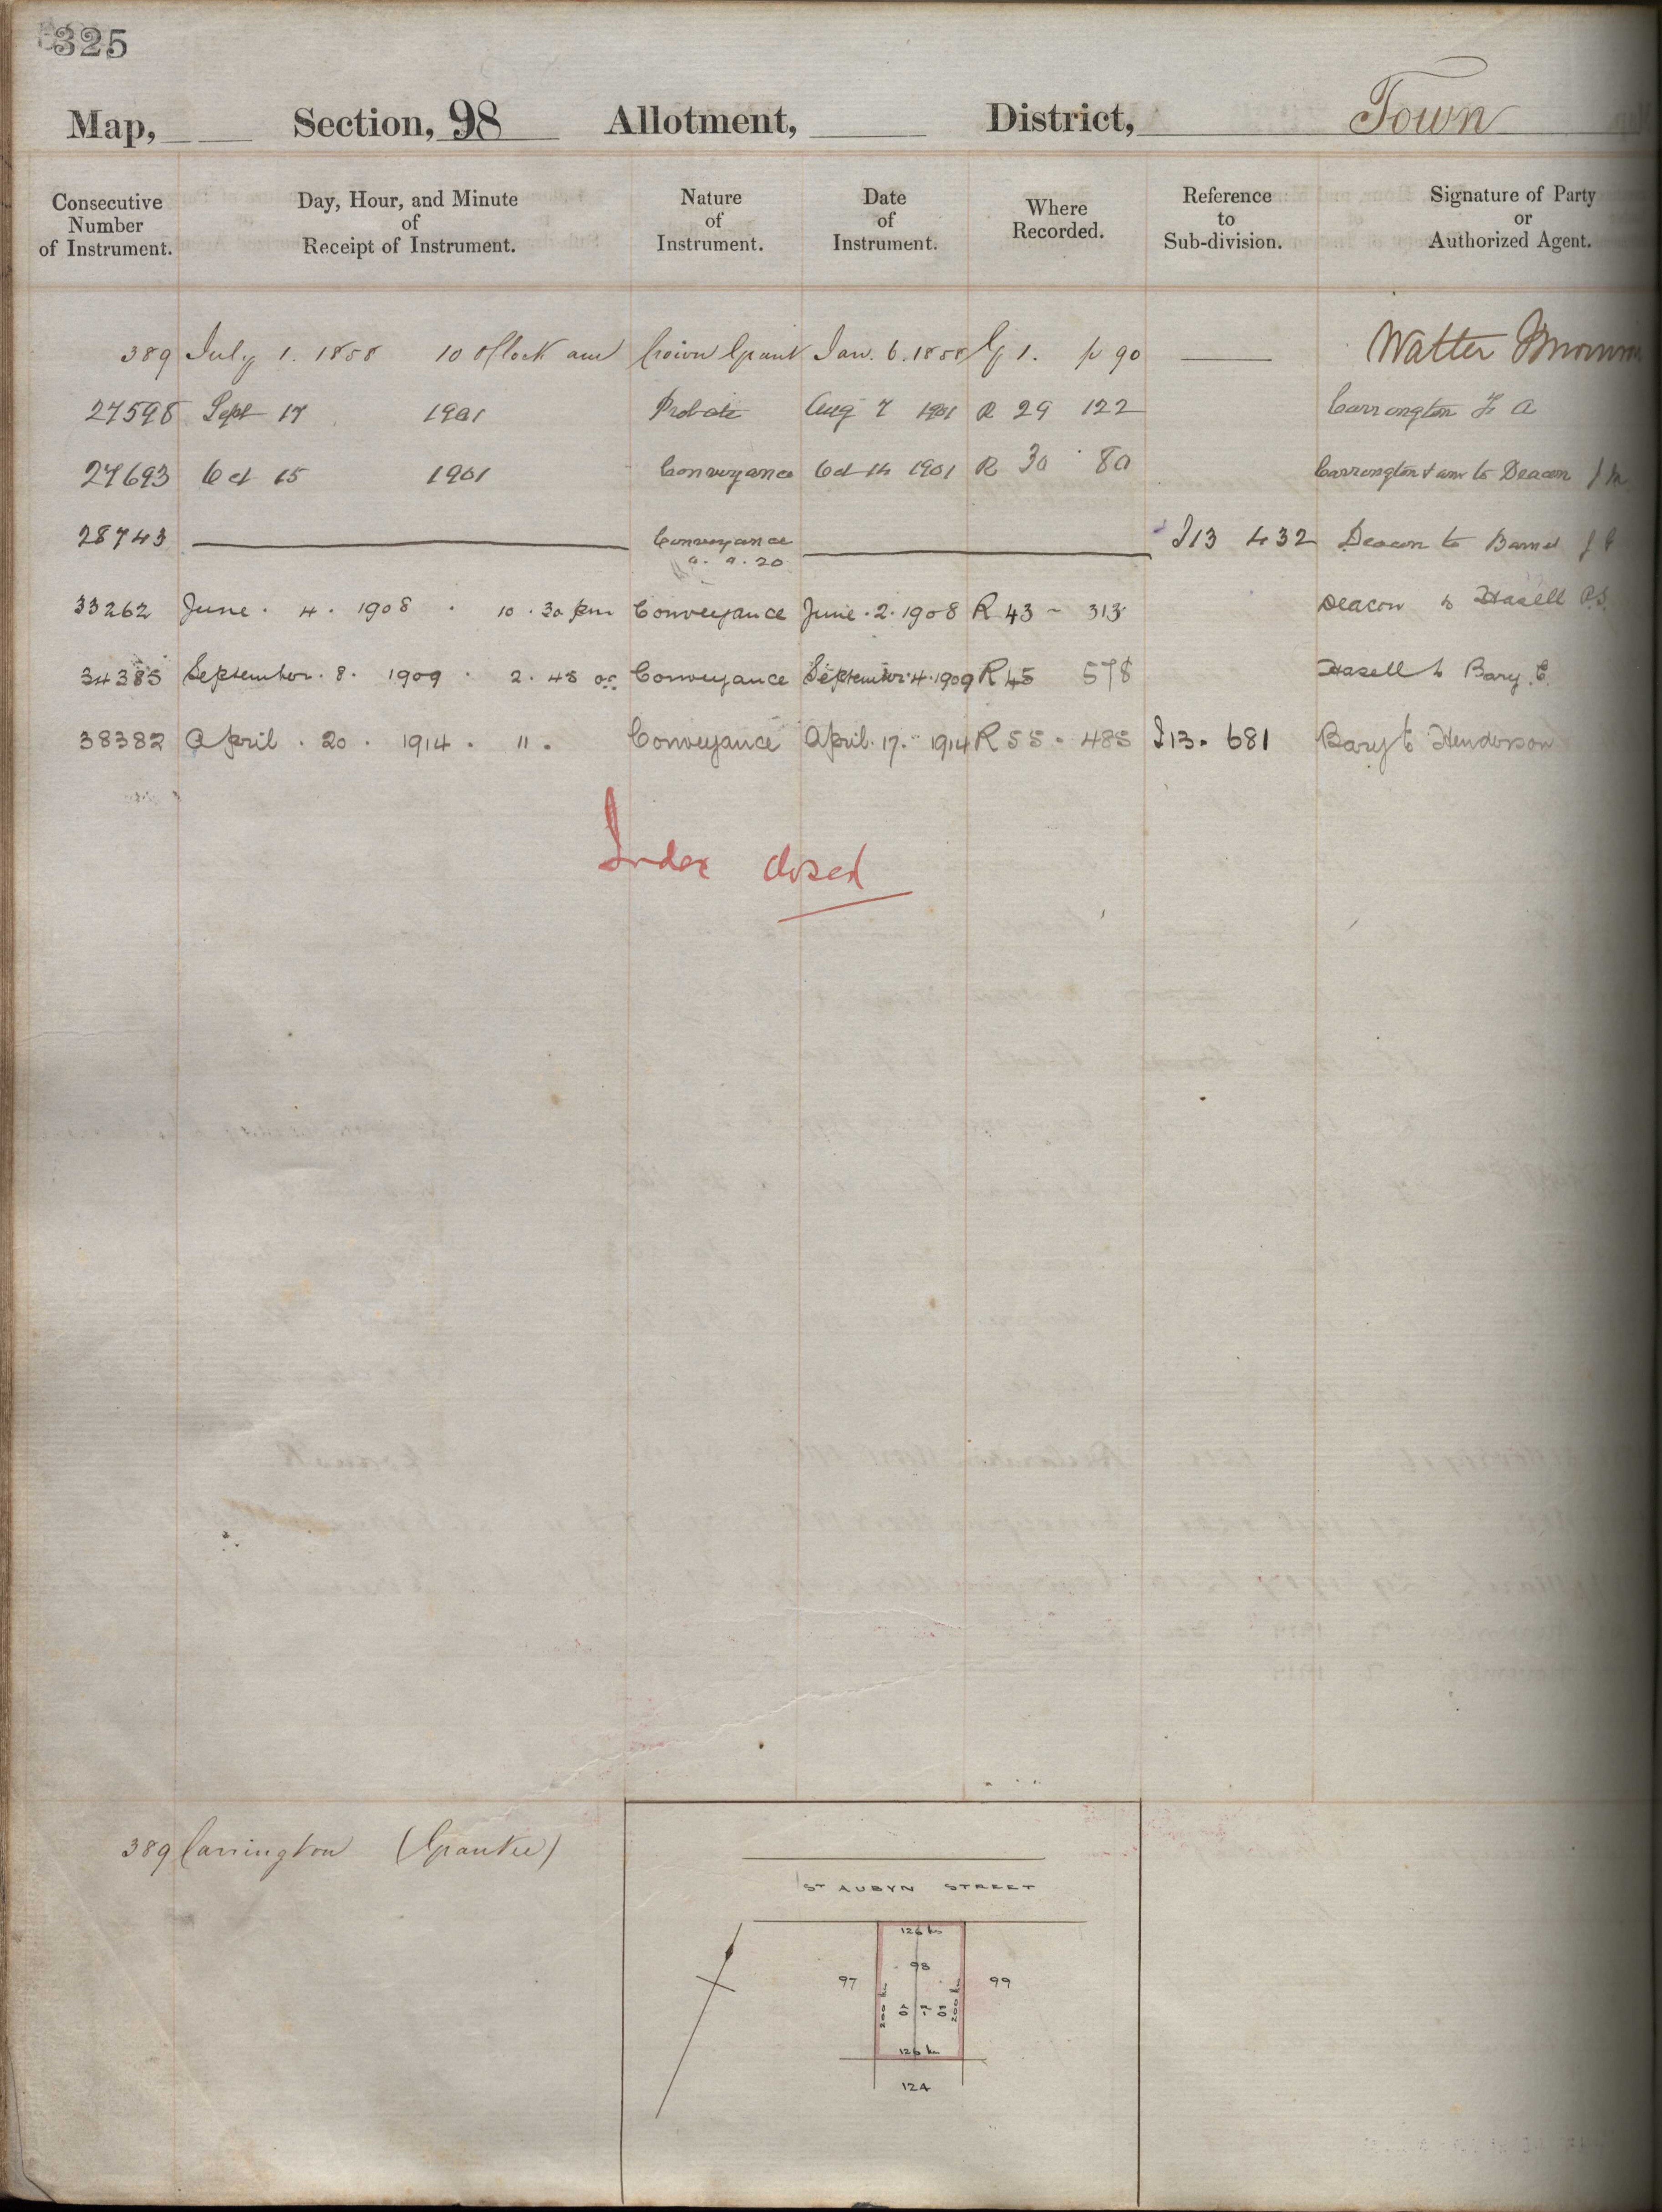 325
Map, Section, 98 Allotment, District, Town
Consecutive Number of Instrument. Day, Hour, and Minute of Receipt of Instrument. Nature of Instrument. Date of Instrument. Where Recorded. Reference to Sub-division. Signature of Party or Authorized Agent.
389 July 1. 1858 10 o'Clock am Crown Grant Jan. 6. 1858 G 1. p 90 Walter
27598 Sept 17 1901 Probate Aug 7 1901 R 29 122 Carrington F A
27693 Oct 15 1901 Conveyance Oct 14 1901 R 30 80 Carrington & anr to Deacon J M
28743 Conveyance I13 432 Deacon to
a. 9. 20
33262 June. 4. 1908. 10. 30 pm Conveyance June. 2. 1908 R 43 - 313 Deacon to Hasell
34385 September. 8. 1909. 2. 45 Conveyance September. 4. 1909 R 45 578 Hasell to Bary. E.
38382 April. 20. 1914. 11. Conveyance April. 17. 1914 R 55 - 485 I13. 681 Bary to Henderson
Index closed
389 Carrington (Grantee)
ST AUBYN STREET
126 lks
98
97 99
200 lks 200 lks
126 lks
124